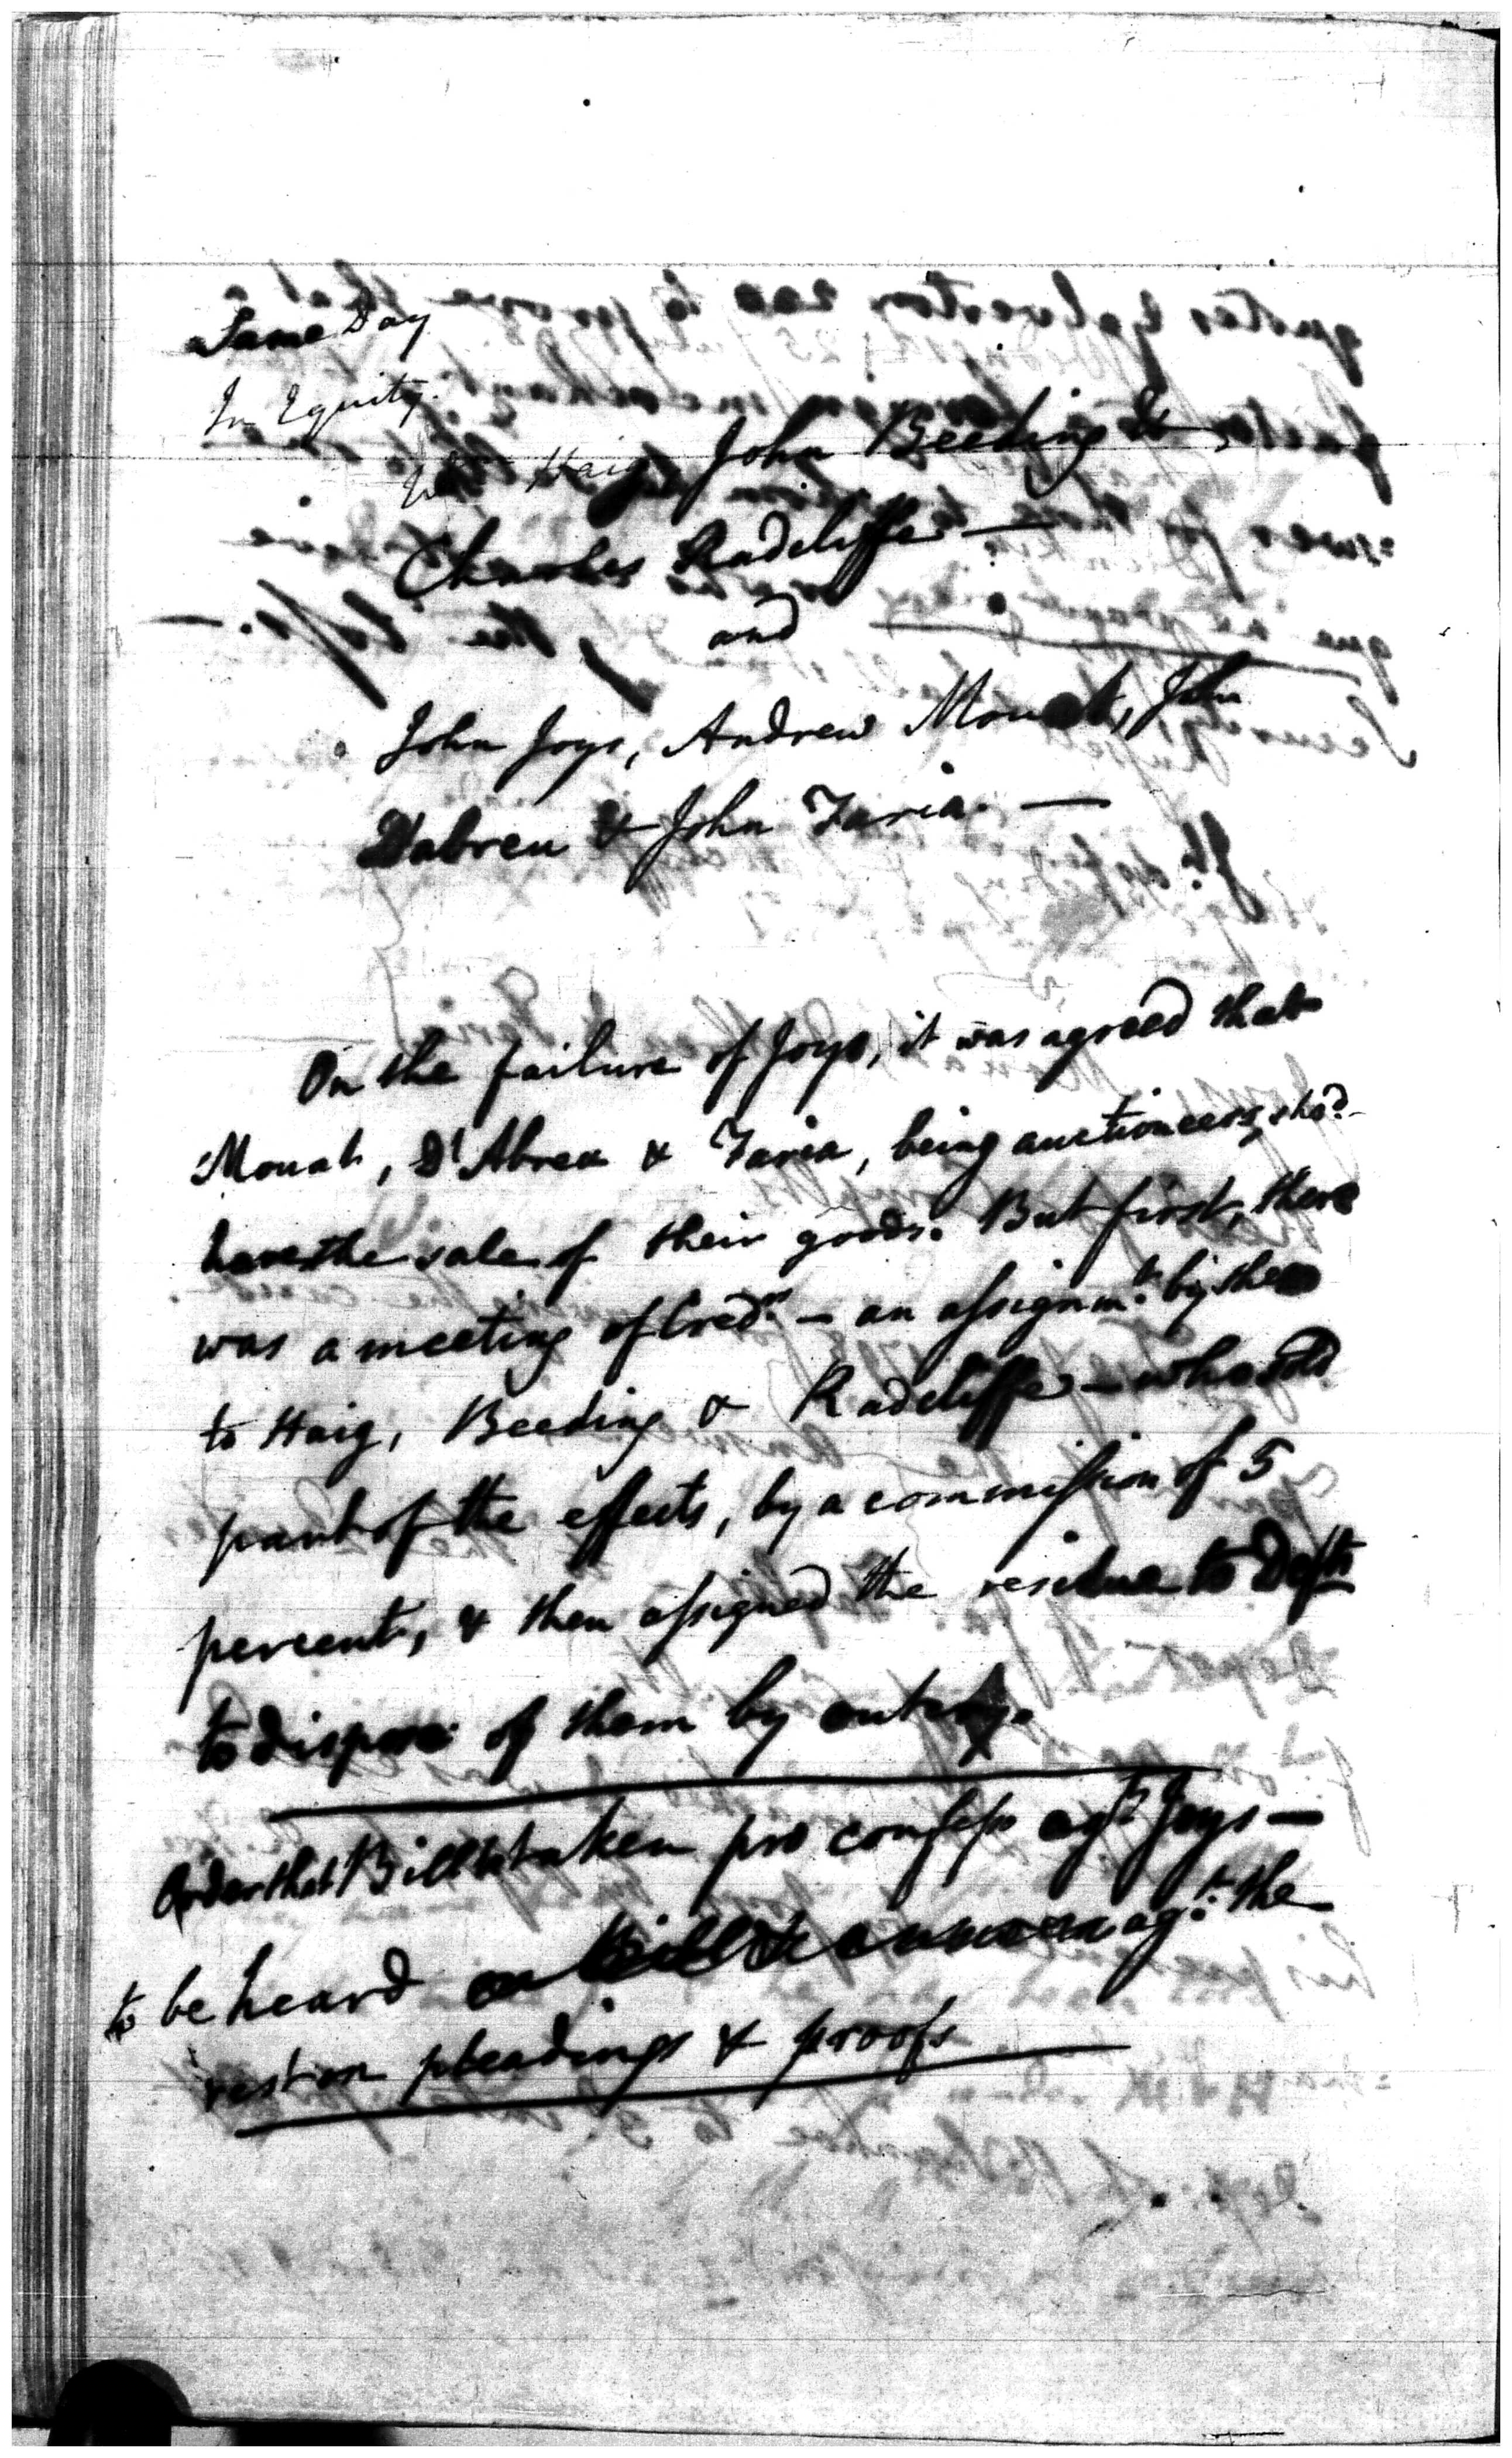 Same Day
In Equity.
Haig John Beeding &
Charles Radcliffe —
and
John Joys, Andrew Mouat, John
Dabreu & John Faria. —
On the failure of Joys, it was agreed that
Mouat, D'Abreu & Faria, being auctioneers, sho.d
have the sale of their goods. But first, there
was a meeting of Cred.rs — an assignm.t by them
to Haig, Beeding & Radcliffe — who sold
part of the effects, by a commission of 5
percent, & then assigned the residue to Defts
to dispose of them by outcry.
Order that Bill be taken pro confesso ag.t Joys —
to be heard on ag.t the
rest on pleadings & proofs